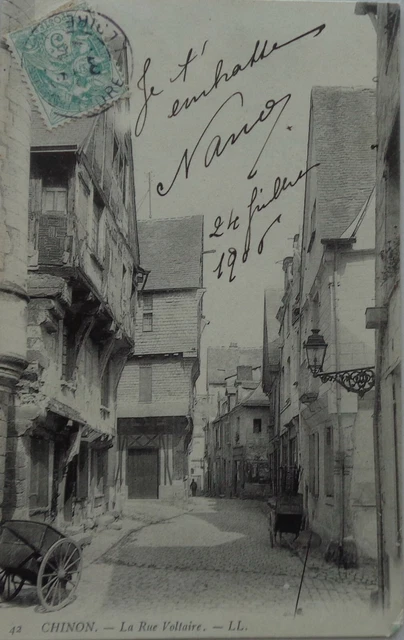 Je t'
embrasse
Nano
24 juillet
1906
42 CHINON. — La Rue Voltaire. — LL.